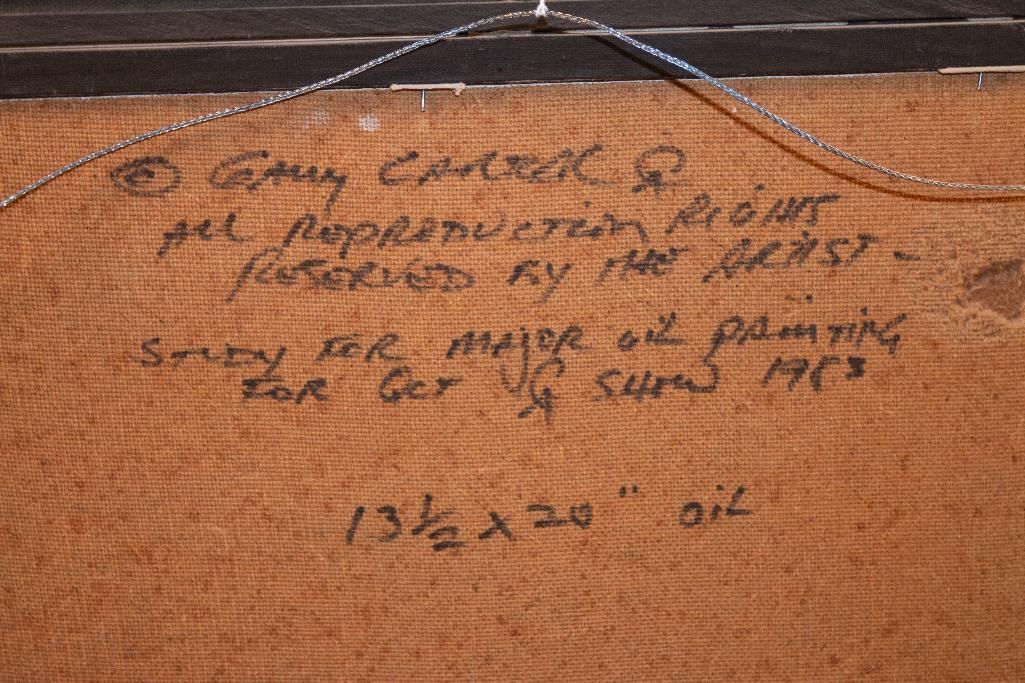 © GARY CARTER
ALL REPRODUCTION RIGHTS
RESERVED BY THE ARTIST -
STUDY FOR MAJOR OIL PAINTING
FOR OCT SHOW 1983
13 1/2 X 20" OIL